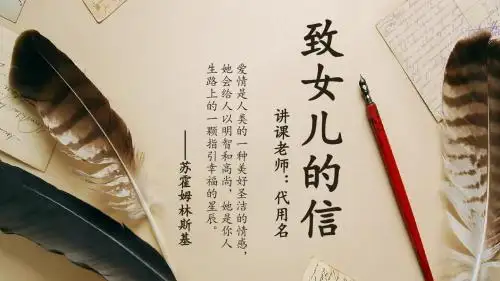 致女儿的信
讲课老师：代用名
爱情是人类的一种美好圣洁的情感，
她会给人以明智和高尚，她是你人
生路上的一颗指引幸福的星辰。
——苏霍姆林斯基